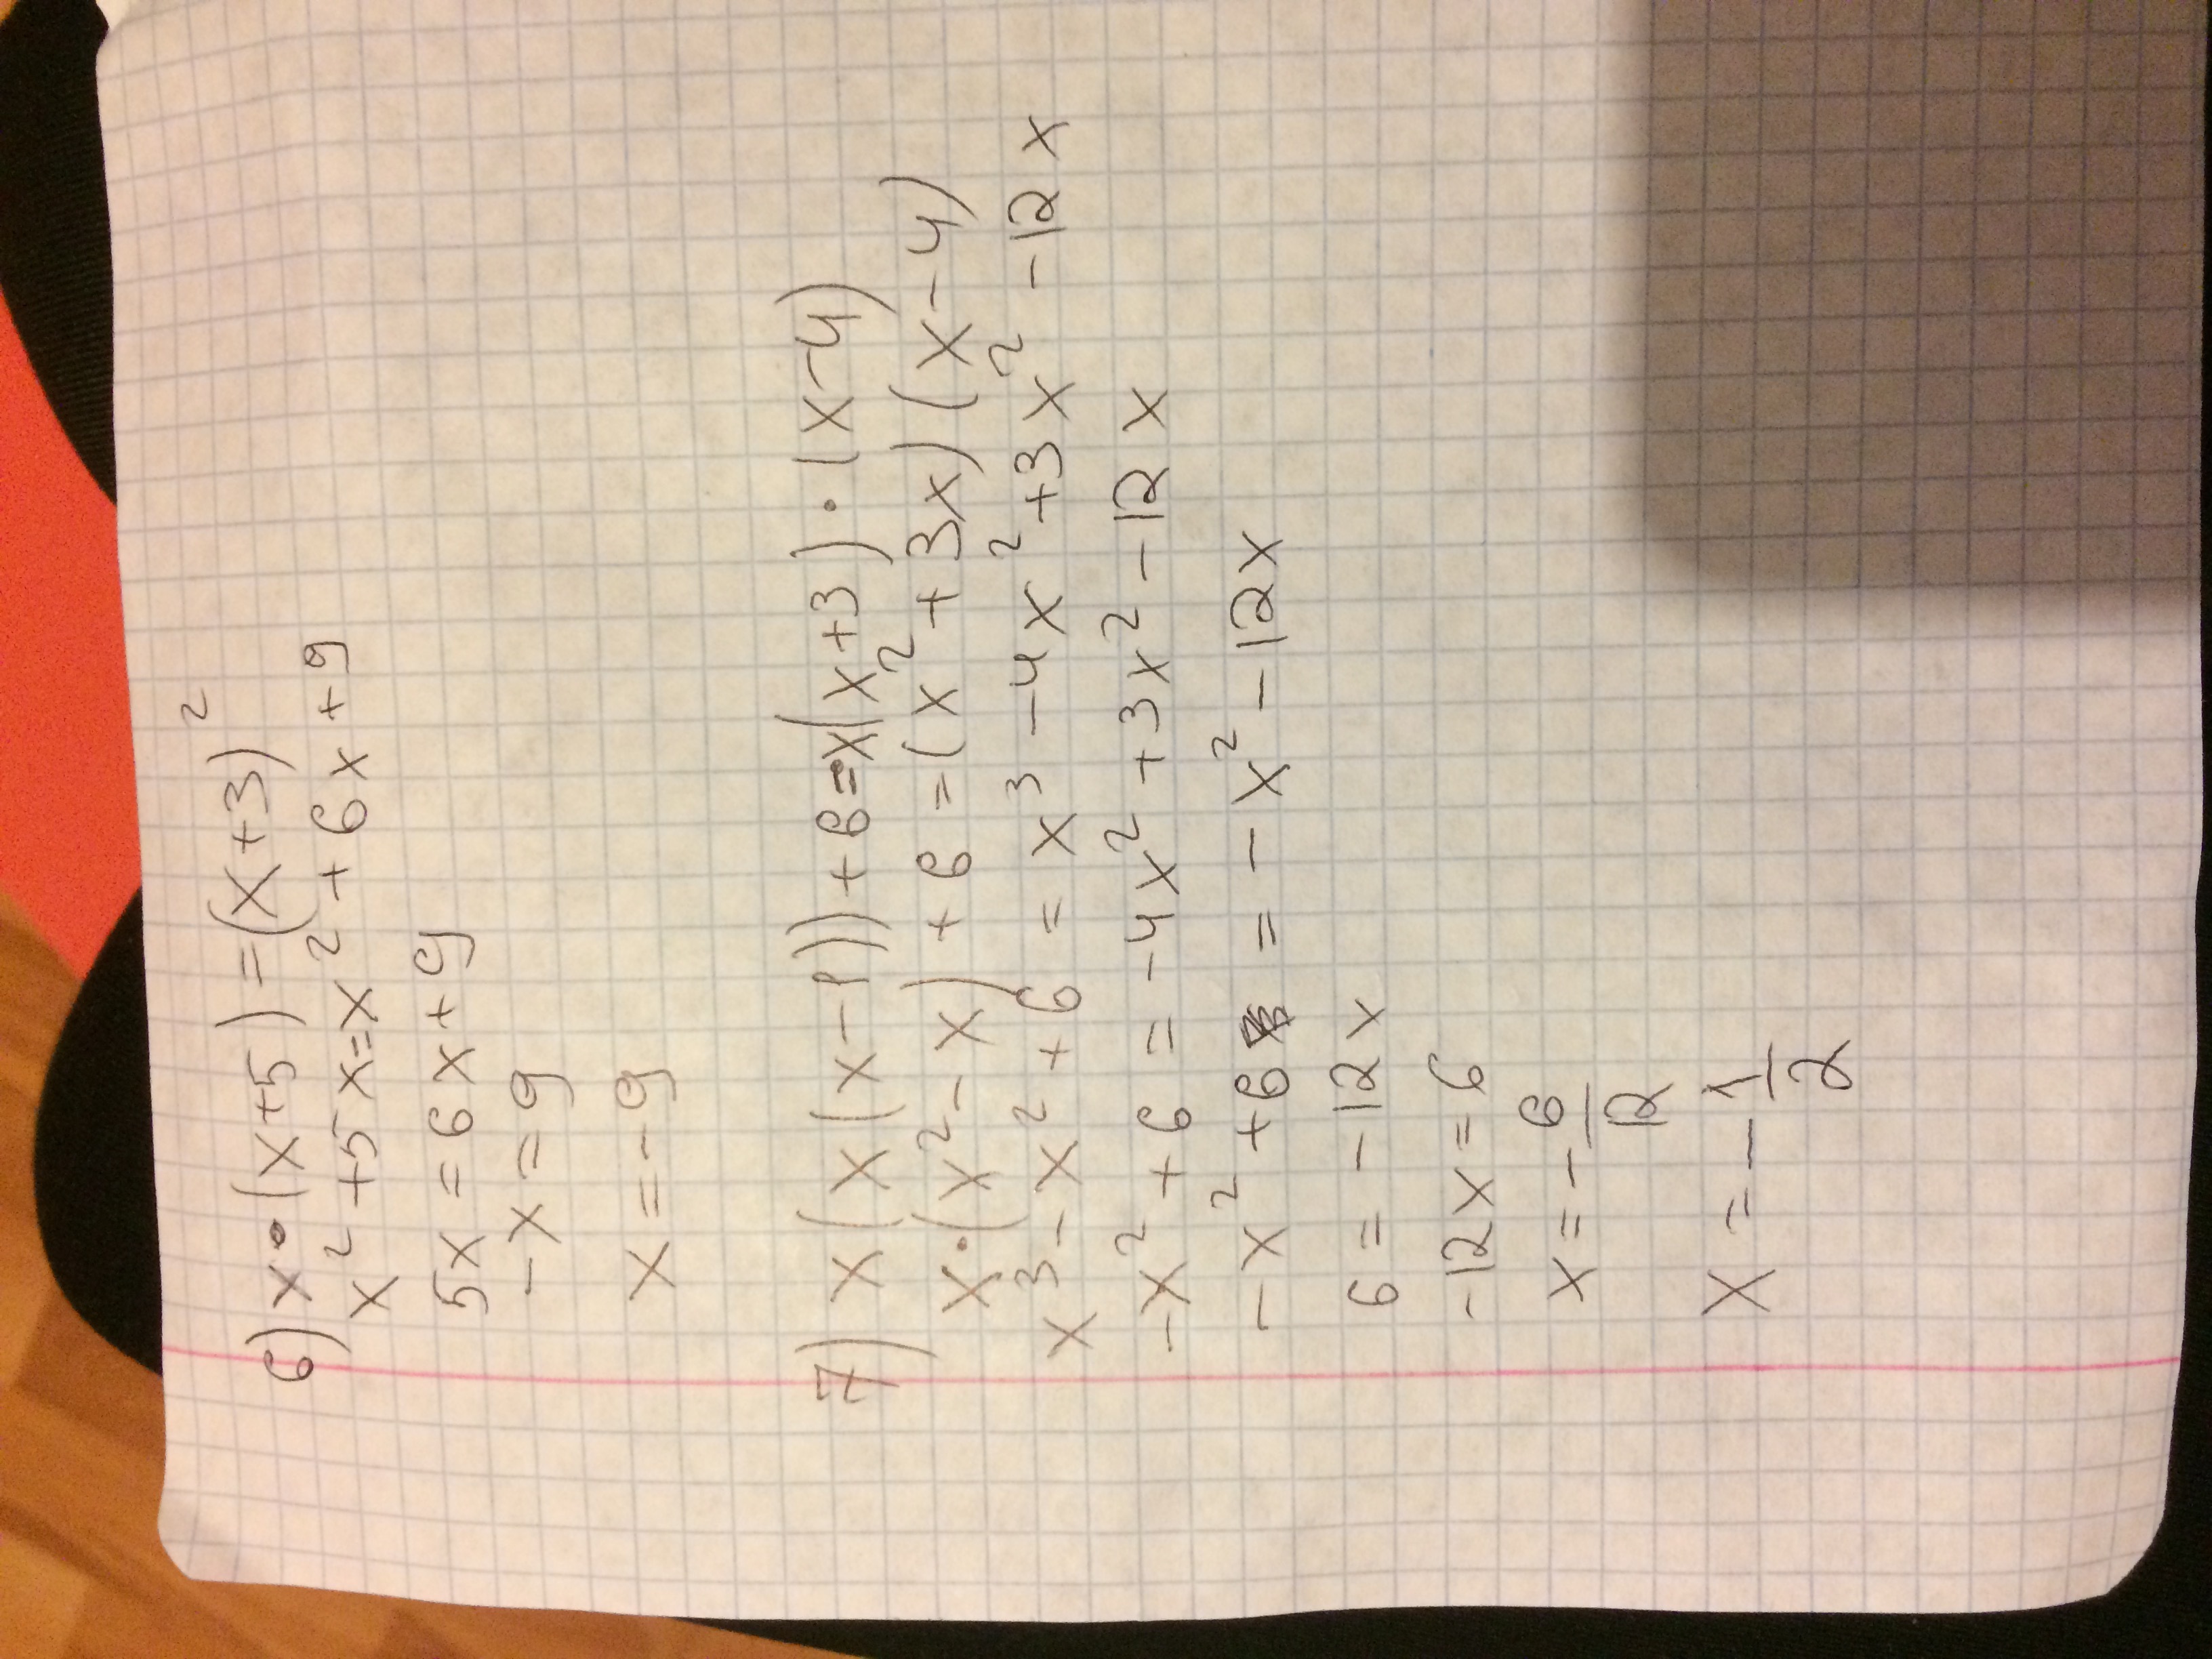 6) x•(x+5)=(x+3)²
x²+5x=x²+6x+9
5x=6x+9
-x=9
x=-9
7) x(x(x-1))+6=x(x+3)•(x-4)
x•(x²-x)+6=(x²+3x)(x-4)
x³-x²+6=x³-4x²+3x²-12x
-x²+6=-4x²+3x²-12x
-x²+6=-x²-12x
6=-12x
-12x=6
x=-6/12
x=-1/2